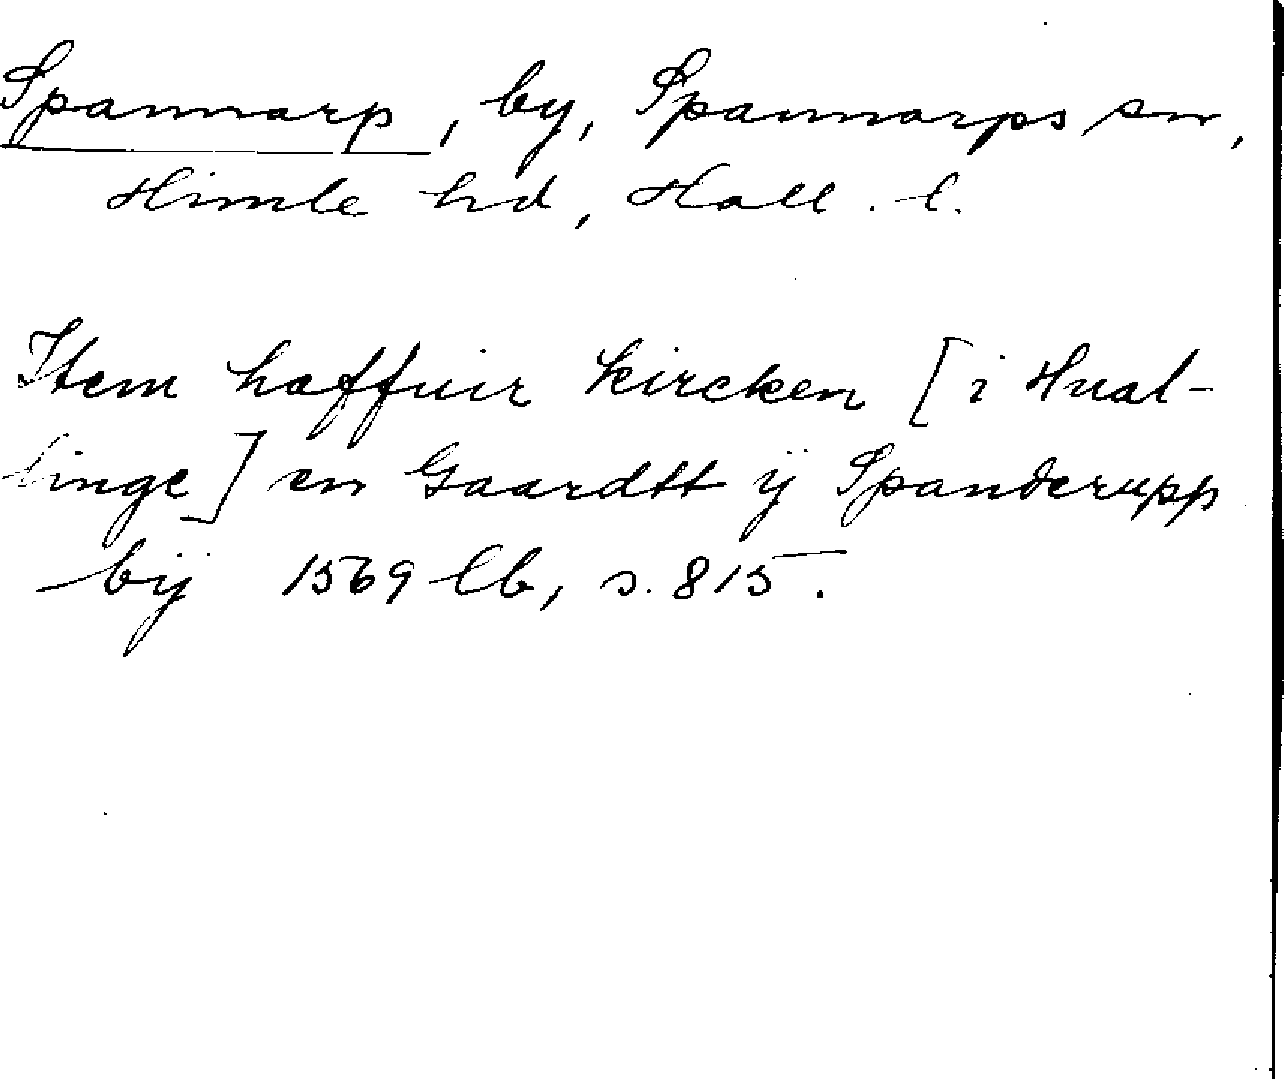 Spannarp, by, Spannarps sn,
Himle hd, Hall. l.
Item haffuir kircken [i Hual-
linge] en Gaardtt ÿ Spanderupp
bÿ 1569 lb, s. 815.